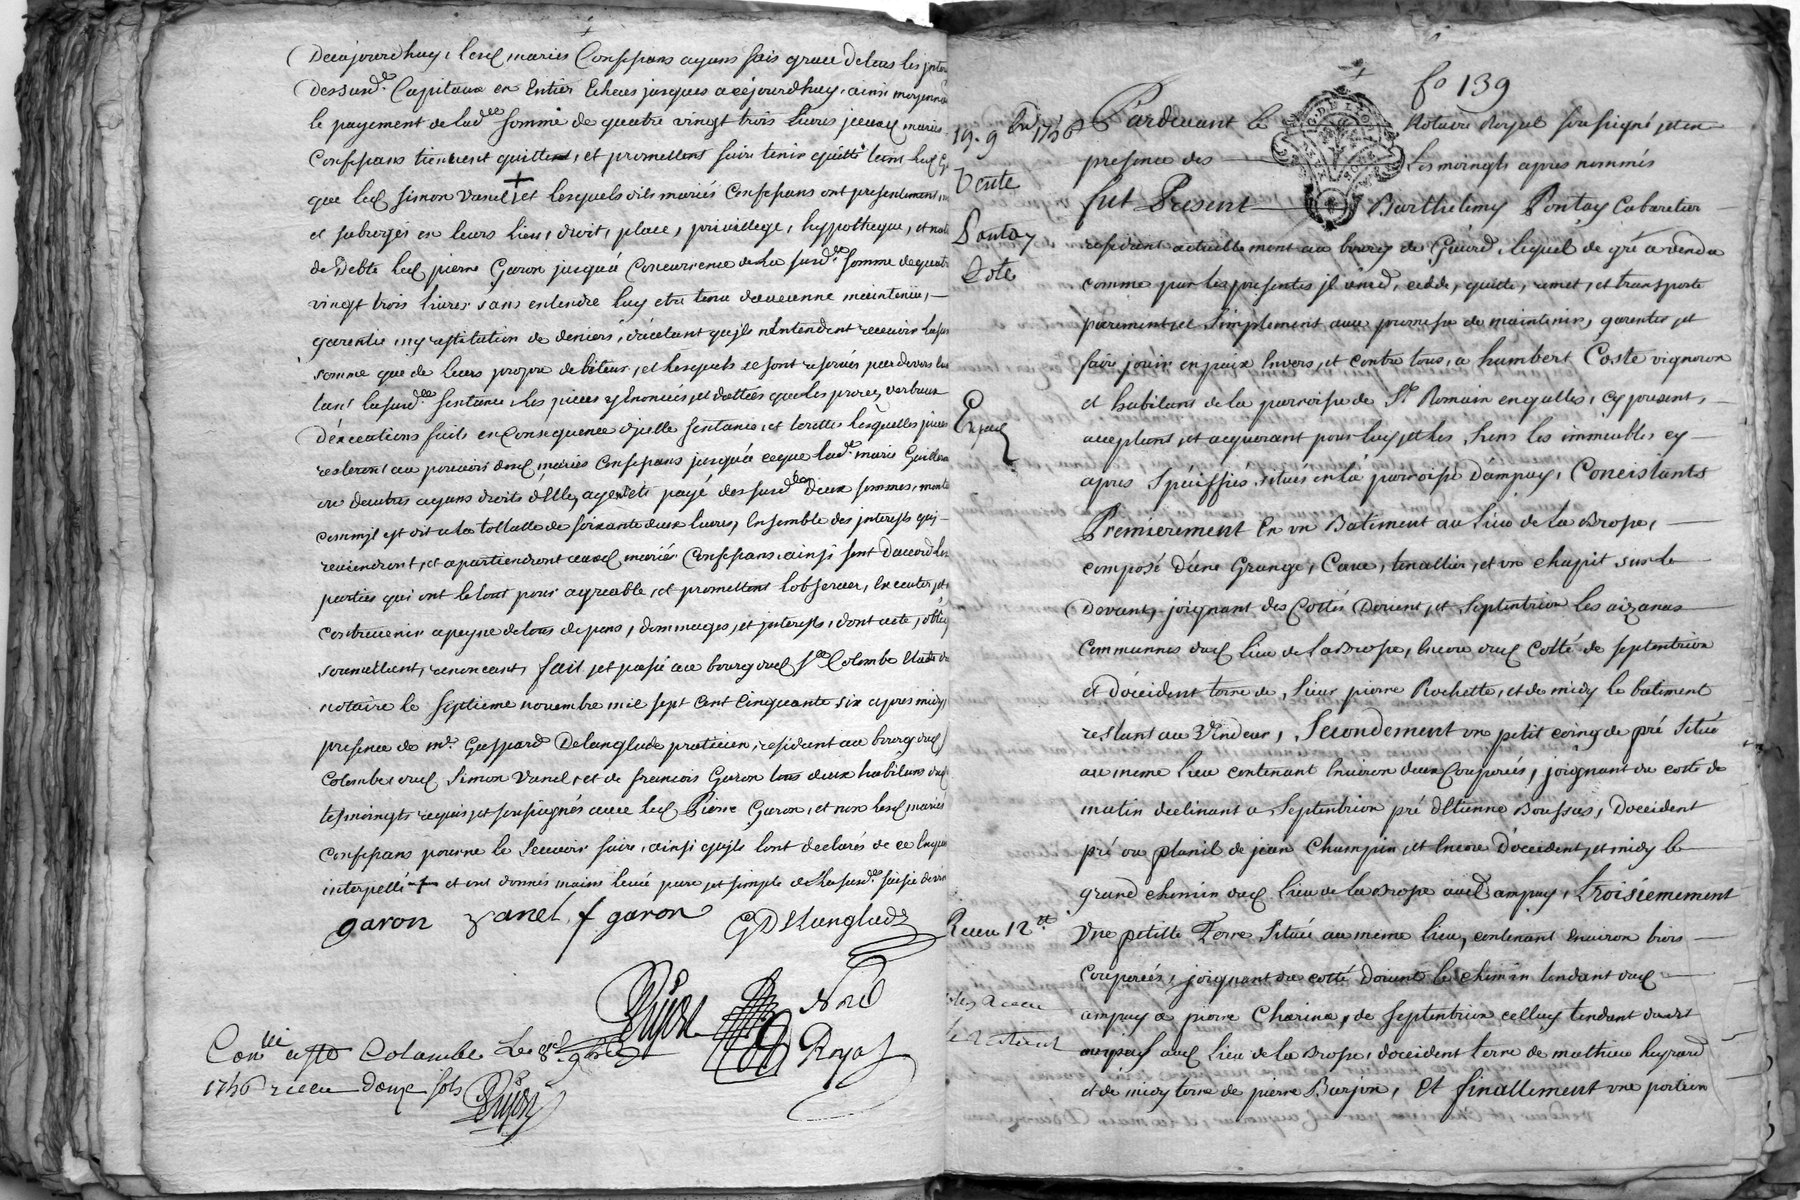 Decejourdhuy, lesd mariés Confessans ayans fait grace de tous les
Dessusd. Capitaux en Entier Echeus jusques a cejourdhuy, ainsi moyennant
le payement de lad somme de quatre vingt trois livres jceux mariés
Confessans tiennent quittent, et promettent faire tenir quitte tant led
que led Simon Vanel + et lesquels dits mariés Confessans ont presentement
et subrogés en leurs lieu, droit, place, privillege, hypotheque, et
de Debte led pierre Garon jusqu'a Concurrence de La susd. somme de quatre
vingt trois livres sans entendre luy etre tenu d'aucunne maintenüe, —
garentie ny restitution de deniers, declarant qu'ils n'Entendent recevoir
somme que de leurs propre debiteur, et lesquels se sont reservés
la susd. sentence les pieces y Enoncées, et dattées que les procez verbaux
D'executions faits en Consequence d'jcelle sentence, et toutes lesquelles pieces
resteront au pouvoir desd mariés Confessans jusqu'a ceque lad. marie
ou dautres ayans droits d'Elle, ayent eté payé des susd deux sommes,
comm'jl est dit a la tottalle de soixante deux livres, Ensemble des jnterests qui —
reviendront, et apartiendront auxd mariés Confessans, ainsi sont D'accord les
parties qui ont le tout pour agreable, et promettent l'observer, Executer,
contrevenir a peyne de tous depens, dommages, et jnterests, dont acte,
soumettant, renonceant, fait, et passé au bourg dud Ste Colombe Etude du
notaire le septieme novembre mil sept cent cinquante six apres midy,
presence de mr. Gaspard Delanglade praticien, resident au bourg dud
Colombe dud Simon Vanel, et de francois Garon tous deux habitans
tesmoingts requis, et soussignés avec led Pierre Garon, et non lesd mariés
Confessans pour ne le scavoir faire, ainsi qu'jls l'ont declarés de ce Enquis
interpellé et ont donnés main levée pure et simple de La susd. saisie
garon vanel f garon GDelanglade
Dujon Nore
Royal
Con a Ste Colombe Le 8e 9bre
1756 receu douze sols Dujon
fo 139
19. 9bre 1756
Vente
Pontay
Coste
Expd
Receu 12 tt
Pardevant le Notaire Royal soussigné, et en
presence des — Tesmoingts apres nommés
fut Present — Barthelemy Pontay Cabaretier —
resident actuellement au bourg de Givord, lequel de gré a vendu
comme par les presentes jl vend, cedde, quitte, remet, et transporte
purement, et simplement avec promesse de maintenir, garentir, et
faire jouir en paix Envers, et contre tous, a humbert Coste vigneron
et habitant de la parroisse de St Romain en galles, cy present, —
acceptant, et acquerant pour luy, et les siens les immeubles cy —
apres spéciffiés situés en la parroisse D'ampuy, Concistants
Premierement En un Batiment au lieu de La Brosse, —
composé d'une Grange, Cave, tinallier, et un chapit sur le —
Devant, joignant des Cottés Dorient, et septentrion les aizances —
Communnes dud lieu de La Brosse, Encore dud Cotté de septentrion
et D'occident terre de Sieur pierre Rochette, et de midy le batiment
restant au Vendeur, Secondement un petit coing de pré situé
au meme lieu contenant Environ deux Couperées, joignant du cotté de
matin declinant a septentrion pré d'Etienne Boussuis, Doccident
pré ou planil de jean Champin, et Encore D'occident, et midy le
grand chemin dud lieu de la Brosse aud ampuy, Troisiemement
Une petitte Terre située au meme lieu, contenant environ trois —
couperées, joignant du cotté dorient le chemin tendant dud —
ampuy a pierre Charina, de septentrion celluy tendant dudit
ampuy aud lieu de la Brosse, doccident terre de mathieu
et de midy terre de pierre Barjon, Et finallement une portion